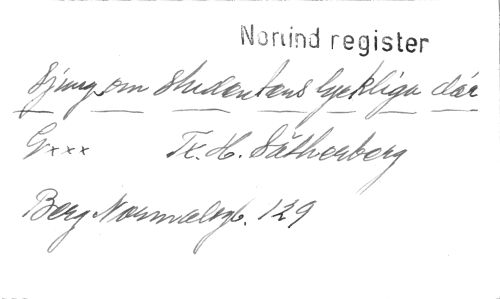 Norlind register
Sjung om studentens lyckliga dar
Gxxx Tx. H. Sätherberg
Berg Normalsgb. 129